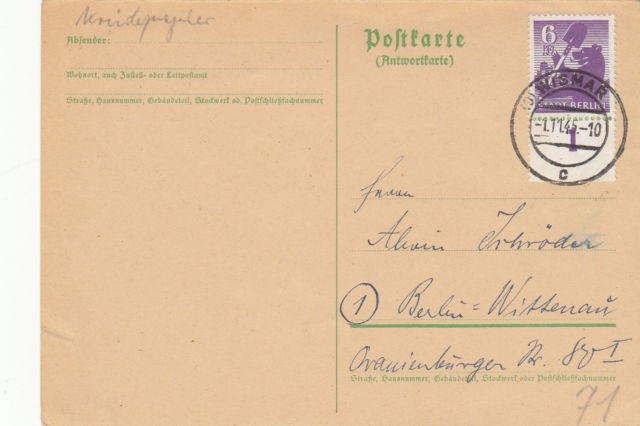 Kreidepapier
Absender:
Wohnort, auch Zustell- oder Leitpostamt
Straße, Hausnummer, Gebäudeteil, Stockwerk od. Postschließfachnummer
Postkarte
(Antwortkarte)
6
STADT BERLIN
WISMAR
-1.11.45.-10
c
1
Herrn
Alwin Schröder
1 Berlin=Wittenau
Oranienburger Str. 87 I
Straße, Hausnummer, Gebäudeteil, Stockwerk oder Postschließfachnummer
71